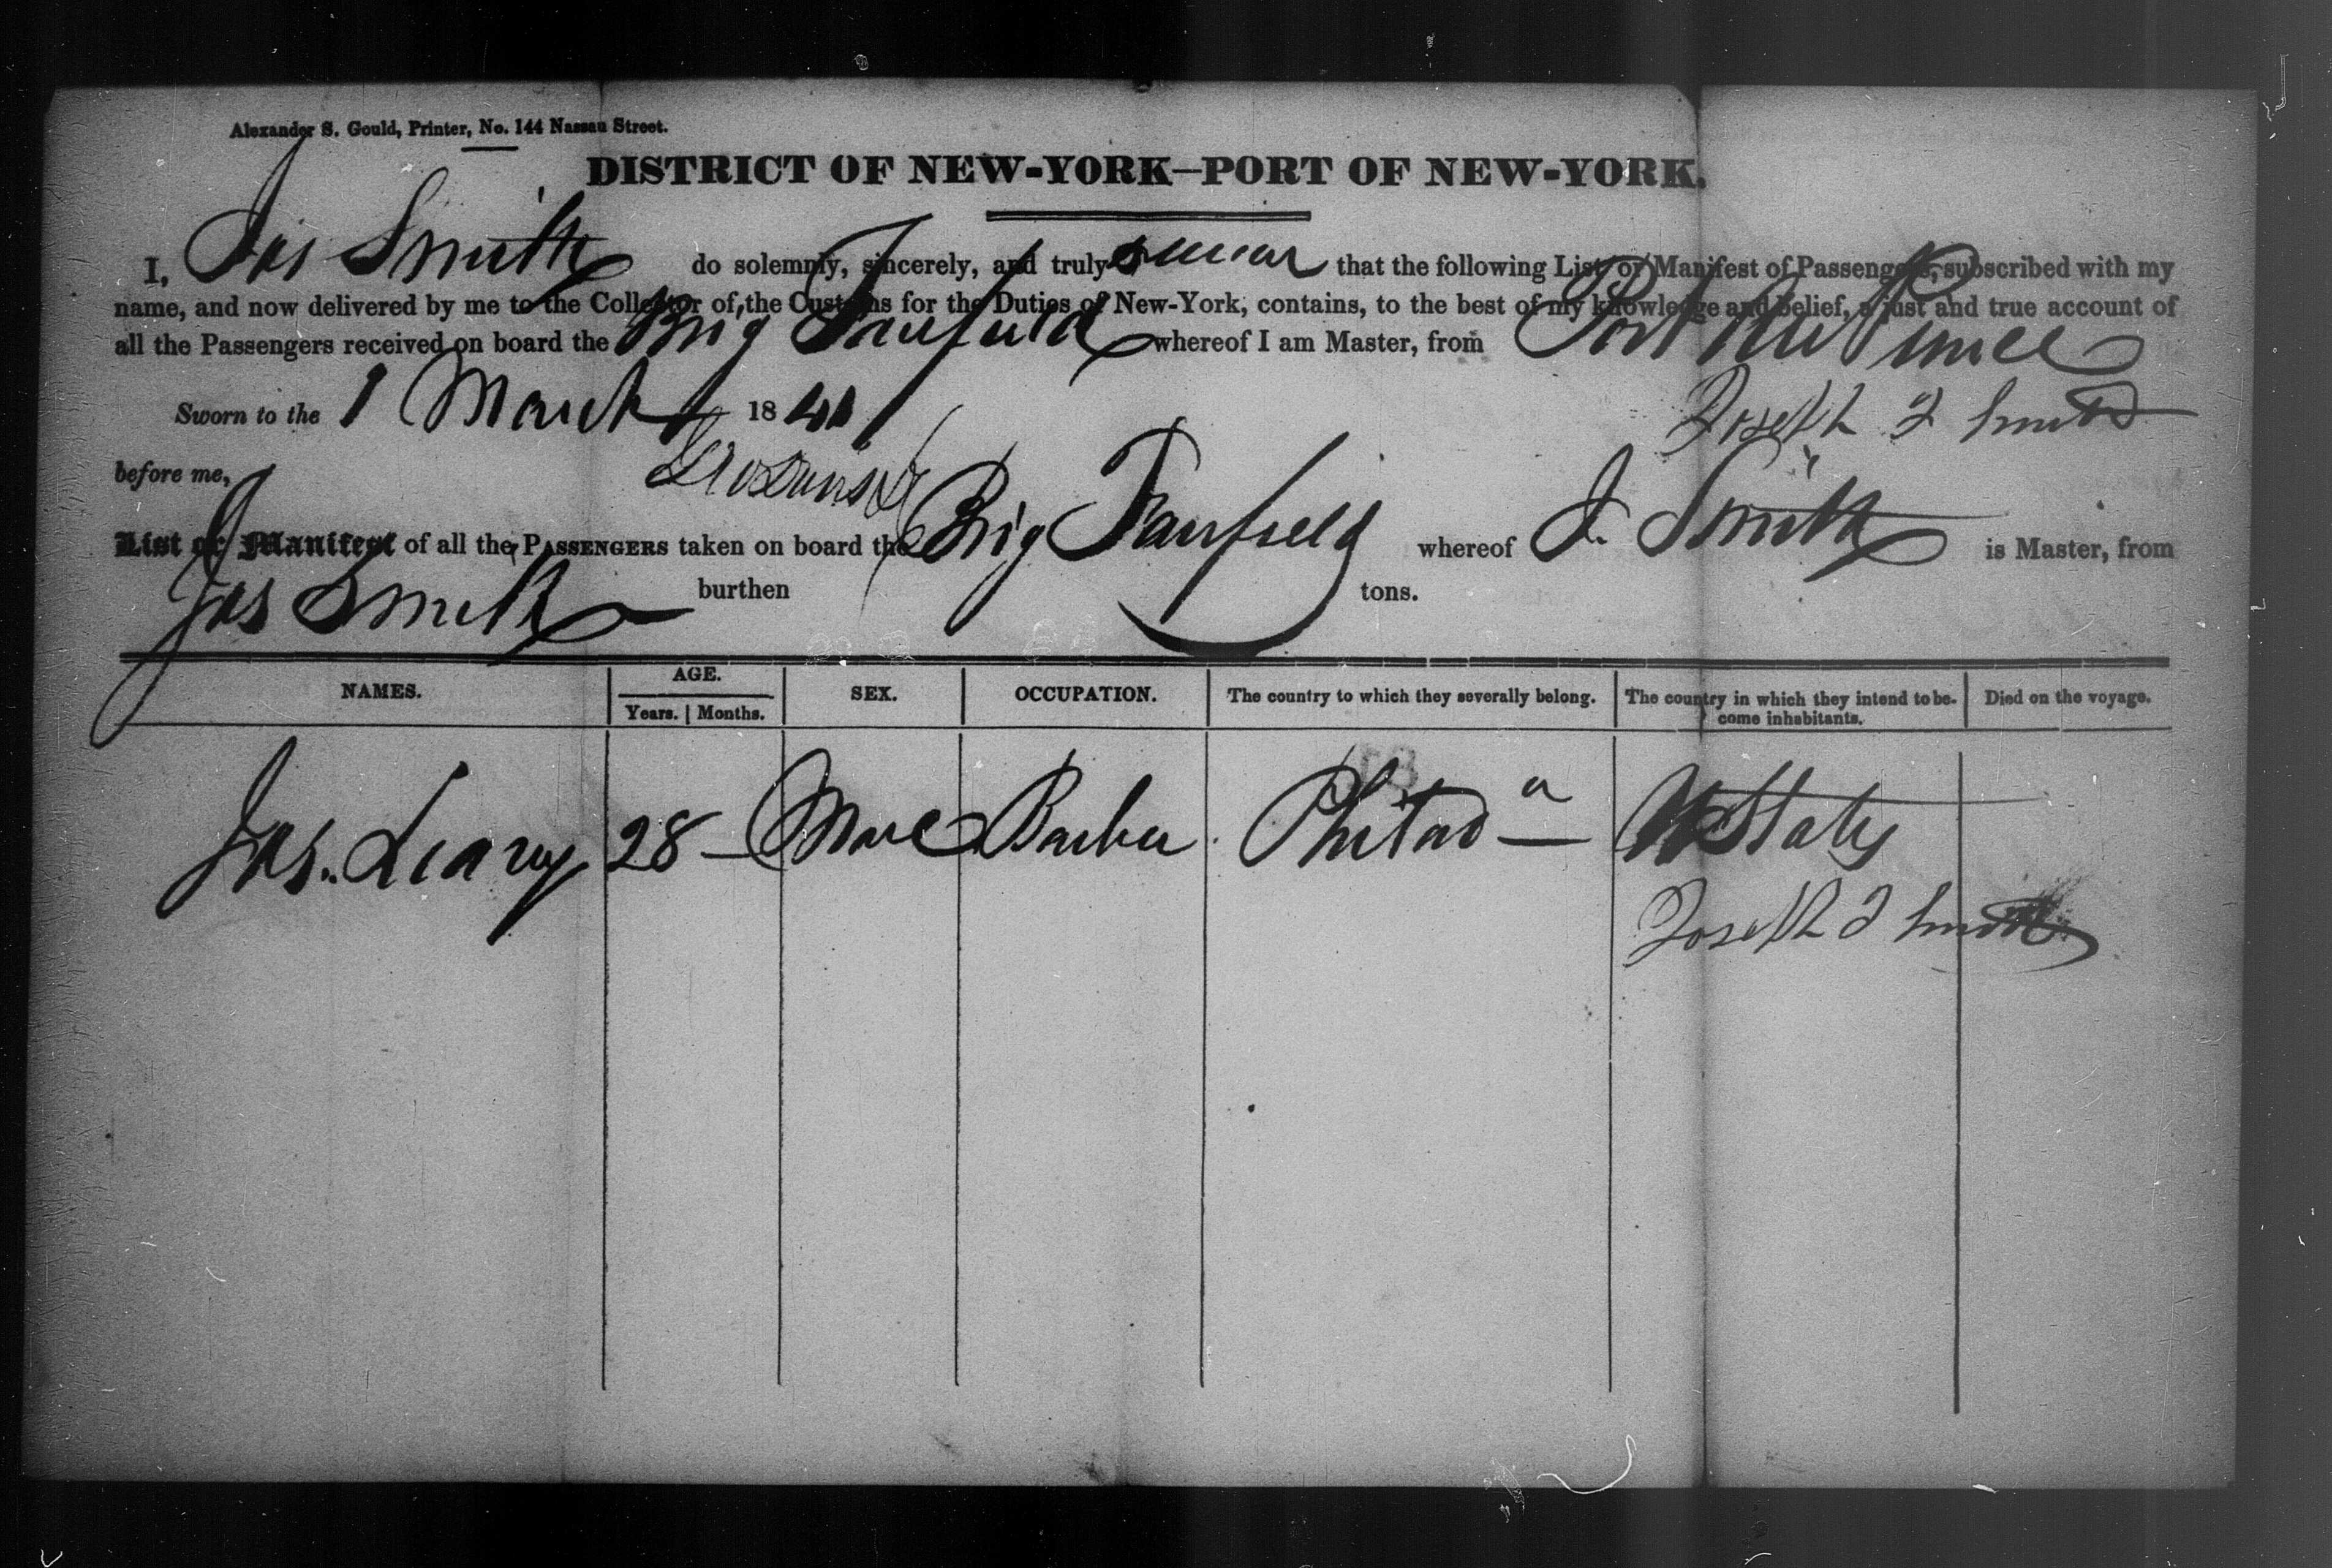 Alexander S. Gould, Printer, No. 144 Nassau Street.
DISTRICT OF NEW-YORK—PORT OF NEW-YORK.
I, Jas Smith do solemnly, sincerely, and truly swear that the following List or Manifest of Passengers, subscribed with my
name, and now delivered by me to the Collector of the Customs for the Duties of New-York, contains, to the best of my knowledge and belief, a just and true account of
all the Passengers received on board the Brig Fairfield whereof I am Master, from Port Au Prince
Sworn to the 1 March 1841
Joseph I Smith
before me,
List or Manifest of all the PASSENGERS taken on board the Brig Fairfield whereof J. Smith is Master, from
Jas Smith burthen tons.
NAMES. AGE. SEX. OCCUPATION. The country to which they severally belong. The country in which they intend to be- Died on the voyage.
Years. Months. come inhabitants.
Jas. Leary 28 — Male Barber Philad a U States
Joseph I Smith